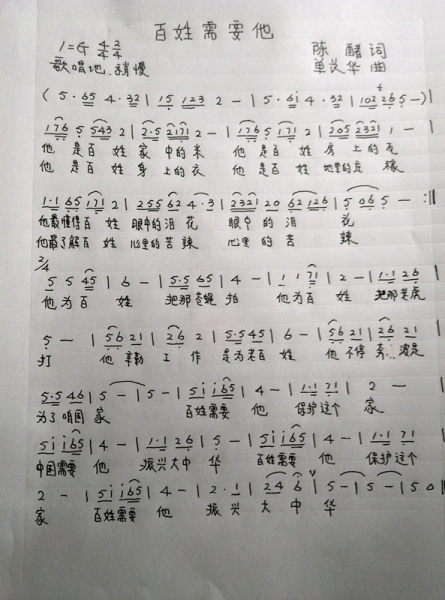 百姓需要他
1=G 4/4 2/4 陈 词
歌唱地、稍慢 单 华 曲
( 5·65 4·32 | 15 123 2 - | 5·6i 4·32 | 102 265 - )
176 5 543 2 | 2·5 2171 2 - | 176 5 171 2 | 205 2321 1 - |
他 是百 姓 家 中的米 他 是百 姓 房 上的瓦
他 是百 姓 身 上的衣 他 是百 姓 地里的庄 稼
1·1 65 171 2 | 255 62 4·3 | 2321 20 62 126 | 5 06 5 - :||
他最懂得百 姓 眼中的泪 花 眼中 的 泪 花
他最了解百 姓 心里的苦 辣 心里 的 苦 辣
2/4
5 5 45 | 6 - | 5·5 65 | 4 - | 1 1 71 | 2 - | 1·1 26 |
他 为百 姓 把那苍蝇 拍 他 为百 姓 把那老虎
5 - | 56 21 | 26 2 | 5·5 45 | 6 - | 56 21 | 26 21 |
打 他 辛勤 工 作 是为老百 姓 他 不停 奔 波是
5·5 46 | 5 - | 5 - | 5i i65 | 4 - | 1·1 71 | 2 -
为了咱国 家 百姓需要 他 保护这个 家
5i i65 | 4 - | 1·1 26 | 5 - | 5i i65 | 4 - | 1·1 71
中国需要 他 振兴大中 华 百姓需要 他 保护这个
2 - | 5i i65 | 4 - | 2·1 | 24 6 | 5 - | 5 - | 5 0 ||
家 百姓需要 他 振 兴 大 中 华